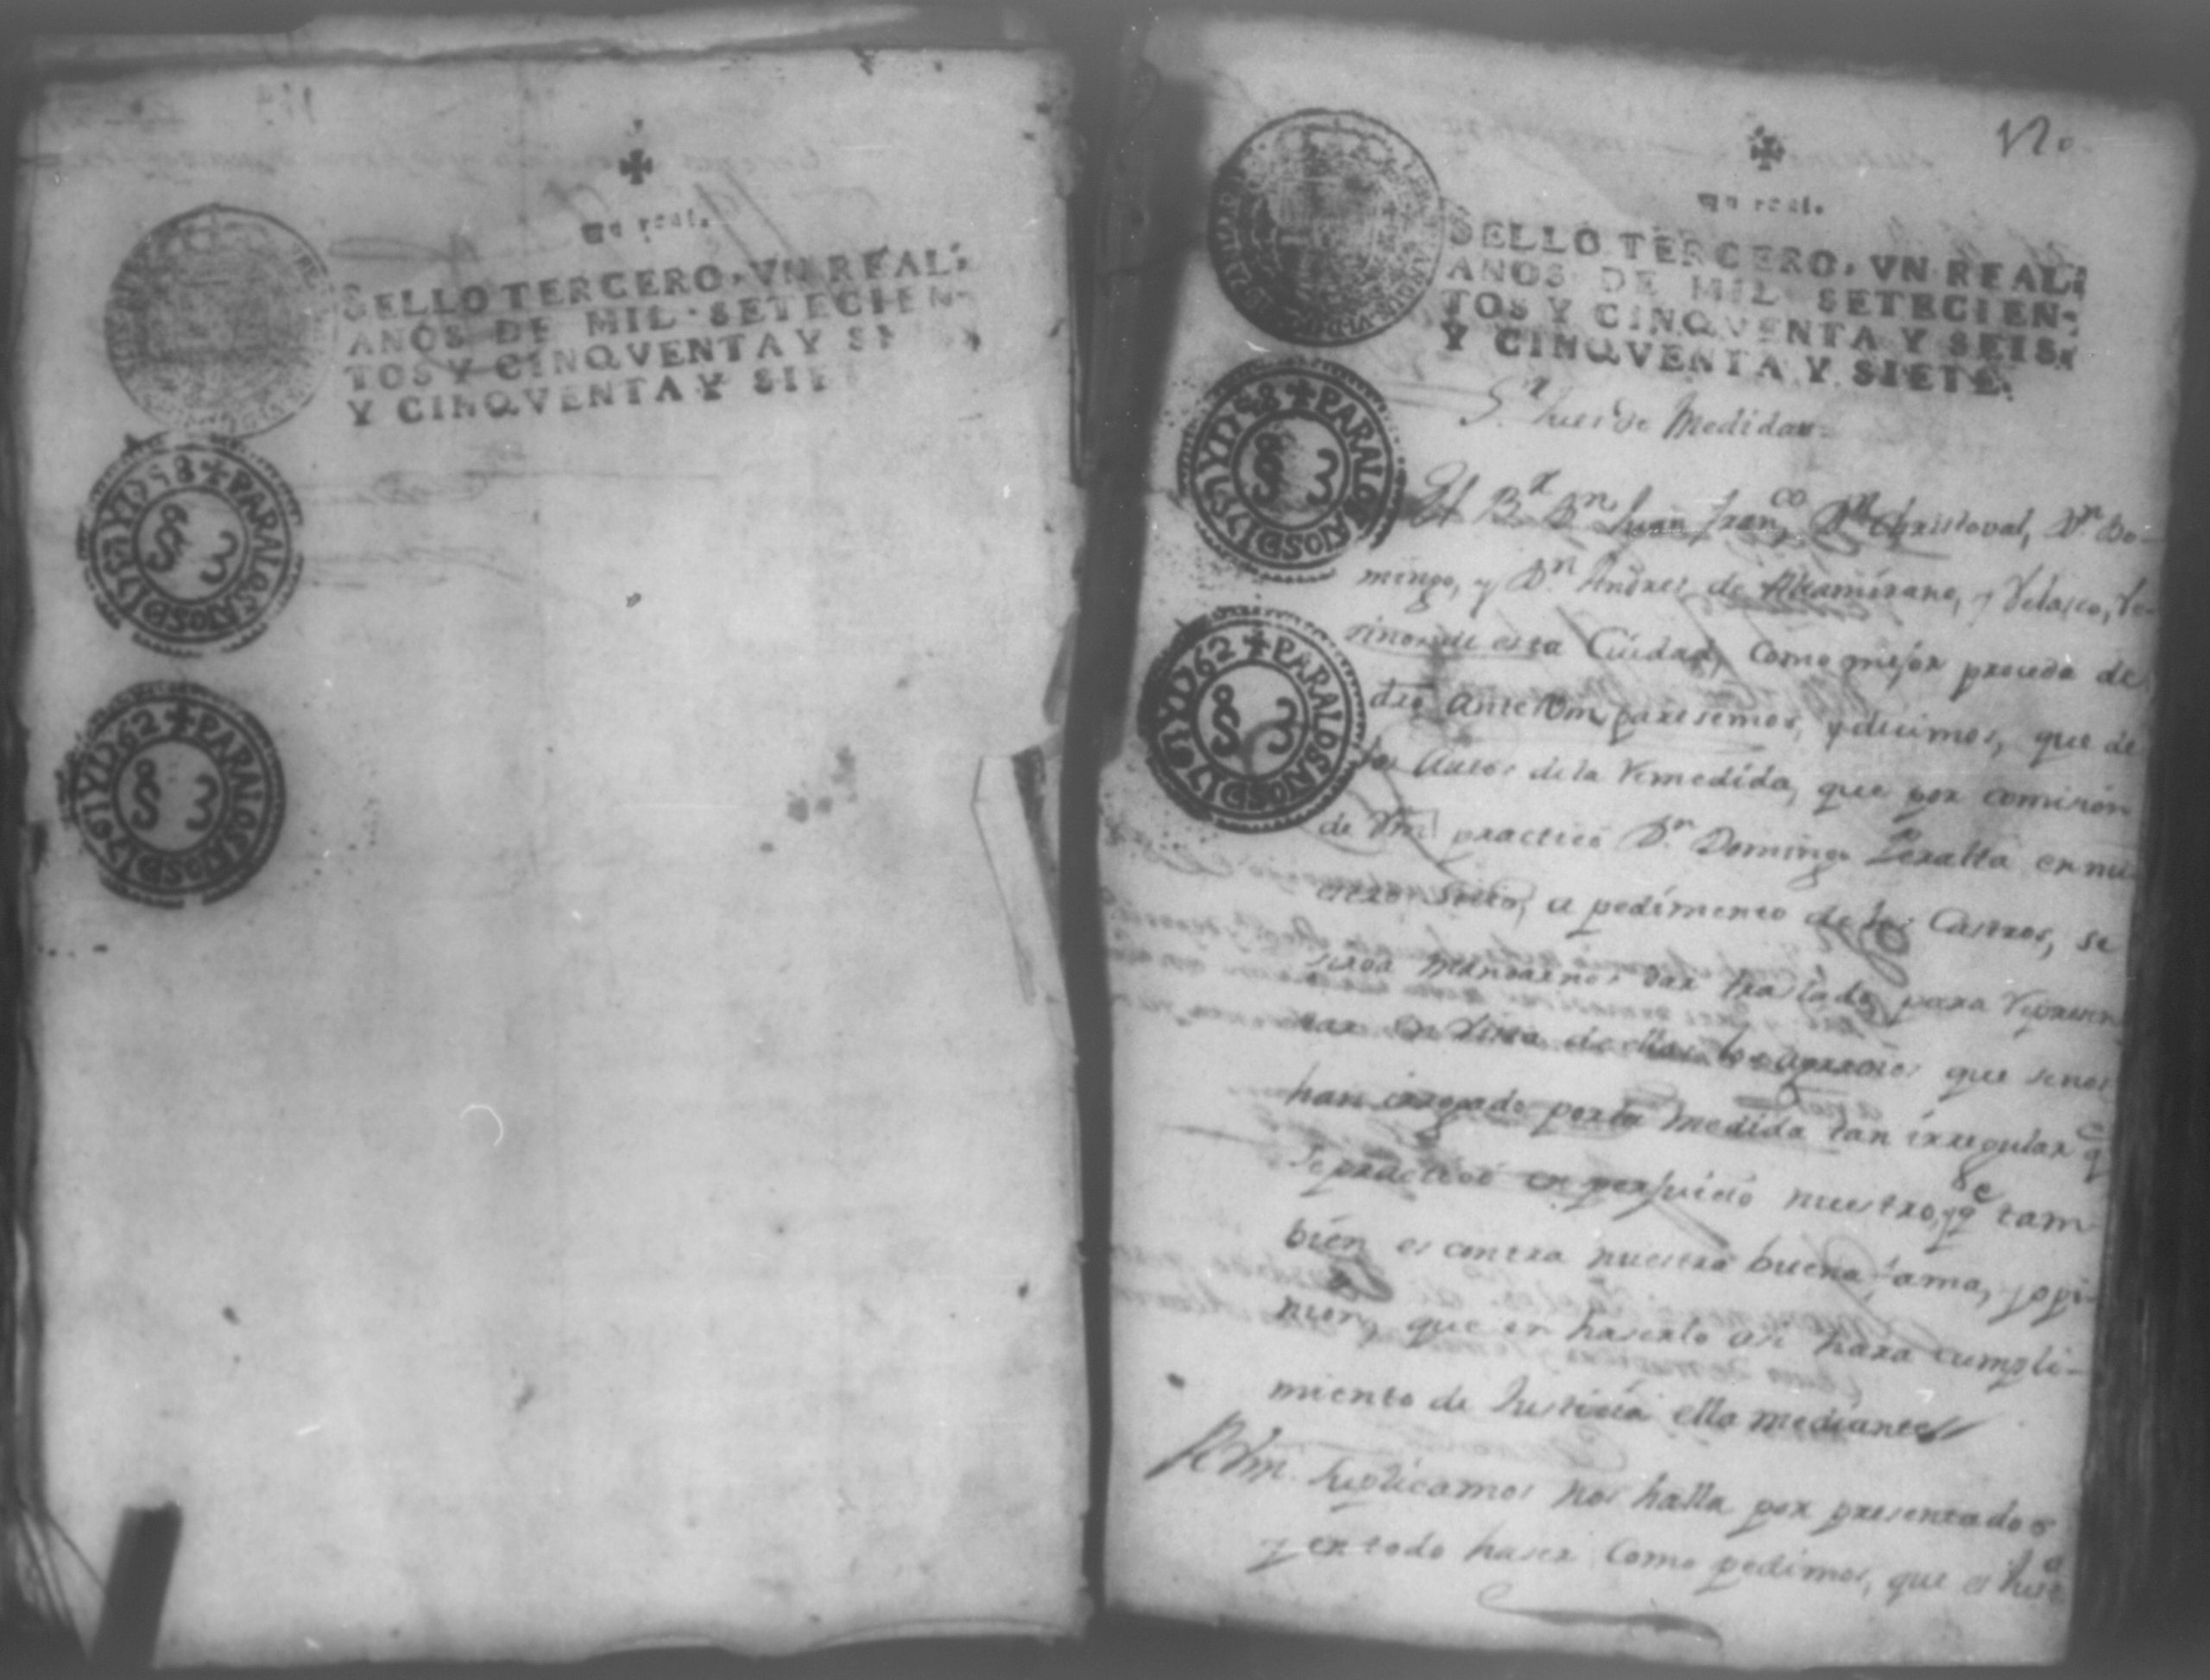 un real.
SELLO TERCERO, VN REAL:
AÑOS DE MIL SETECIEN-
TOS Y CINQVENTA Y
Y CINQVENTA Y
PARA LOS AÑOS DI757 YD758
§ 3
PARA LOS AÑOS DI761 YD762
§ 3
120
un real.
SELLO TERCERO, VN REAL:
AÑOS DE MIL SETECIEN-
TOS Y CINQVENTA Y SEIS,
Y CINQVENTA Y SIETE.
PARA LOS AÑOS DI757 YD758
§ 3
PARA LOS AÑOS DI761 YD762
§ 3
Sr. Jues de Medidas
El Br Dn Juan Franco, Dn Christoval, Dn Do-
mingo, y Dn Andres de Altamirano, y Velasco, Ve-
sinos de esta Ciudad, Como mejor proceda de
dro ante Vm paresemos, y desimos, que de
los Autos de la remedida, que por comision
de Vm practicó Dn Domingo Peralta en nu-
estro Sitio, a pedimento de los Castros, se
sirva mandarnos dar traslado para represen
tar en vista de ellos los agravios que senos
han irrogado por la medida tan irregular q
se practicó en perjuicio nuestro, y qe tam
bien es contra nuestra buena fama, y opi-
nion, que en haserlo asi hara cumpli-
miento de Justicia ella mediante
A Vm. Suplicamos nos halla por presentados
y en todo haser como pedimos, que es Justa